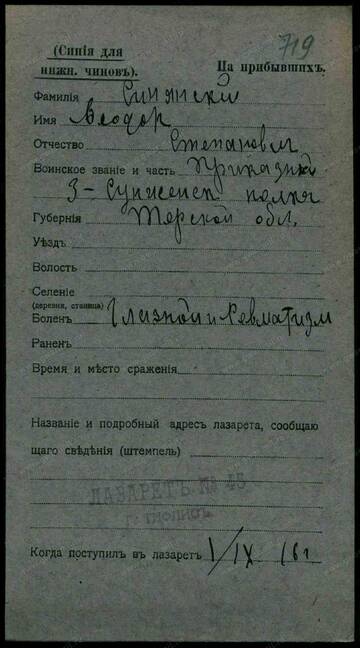 719
(Синія для
нижн. чиновъ).
На прибывшихъ.
Фамилія Синянский
Имя Ѳеодор
Отчество Степанович
Воинское званіе и часть Приказный
3-Сунженск полка
Губернія Терской обл.
Уѣздъ
Волость
Селеніе
(деревня, станица)
Боленъ Глазной и Ревматизм
Раненъ
Время и мѣсто сраженія
Названіе и подробный адресъ лазарета, сообщаю
щаго свѣдѣнія (штемпель)
ЛАЗАРЕТЪ № 45
г. ТИФЛИСЪ
Когда поступилъ въ лазаретъ 1/IX 16 г